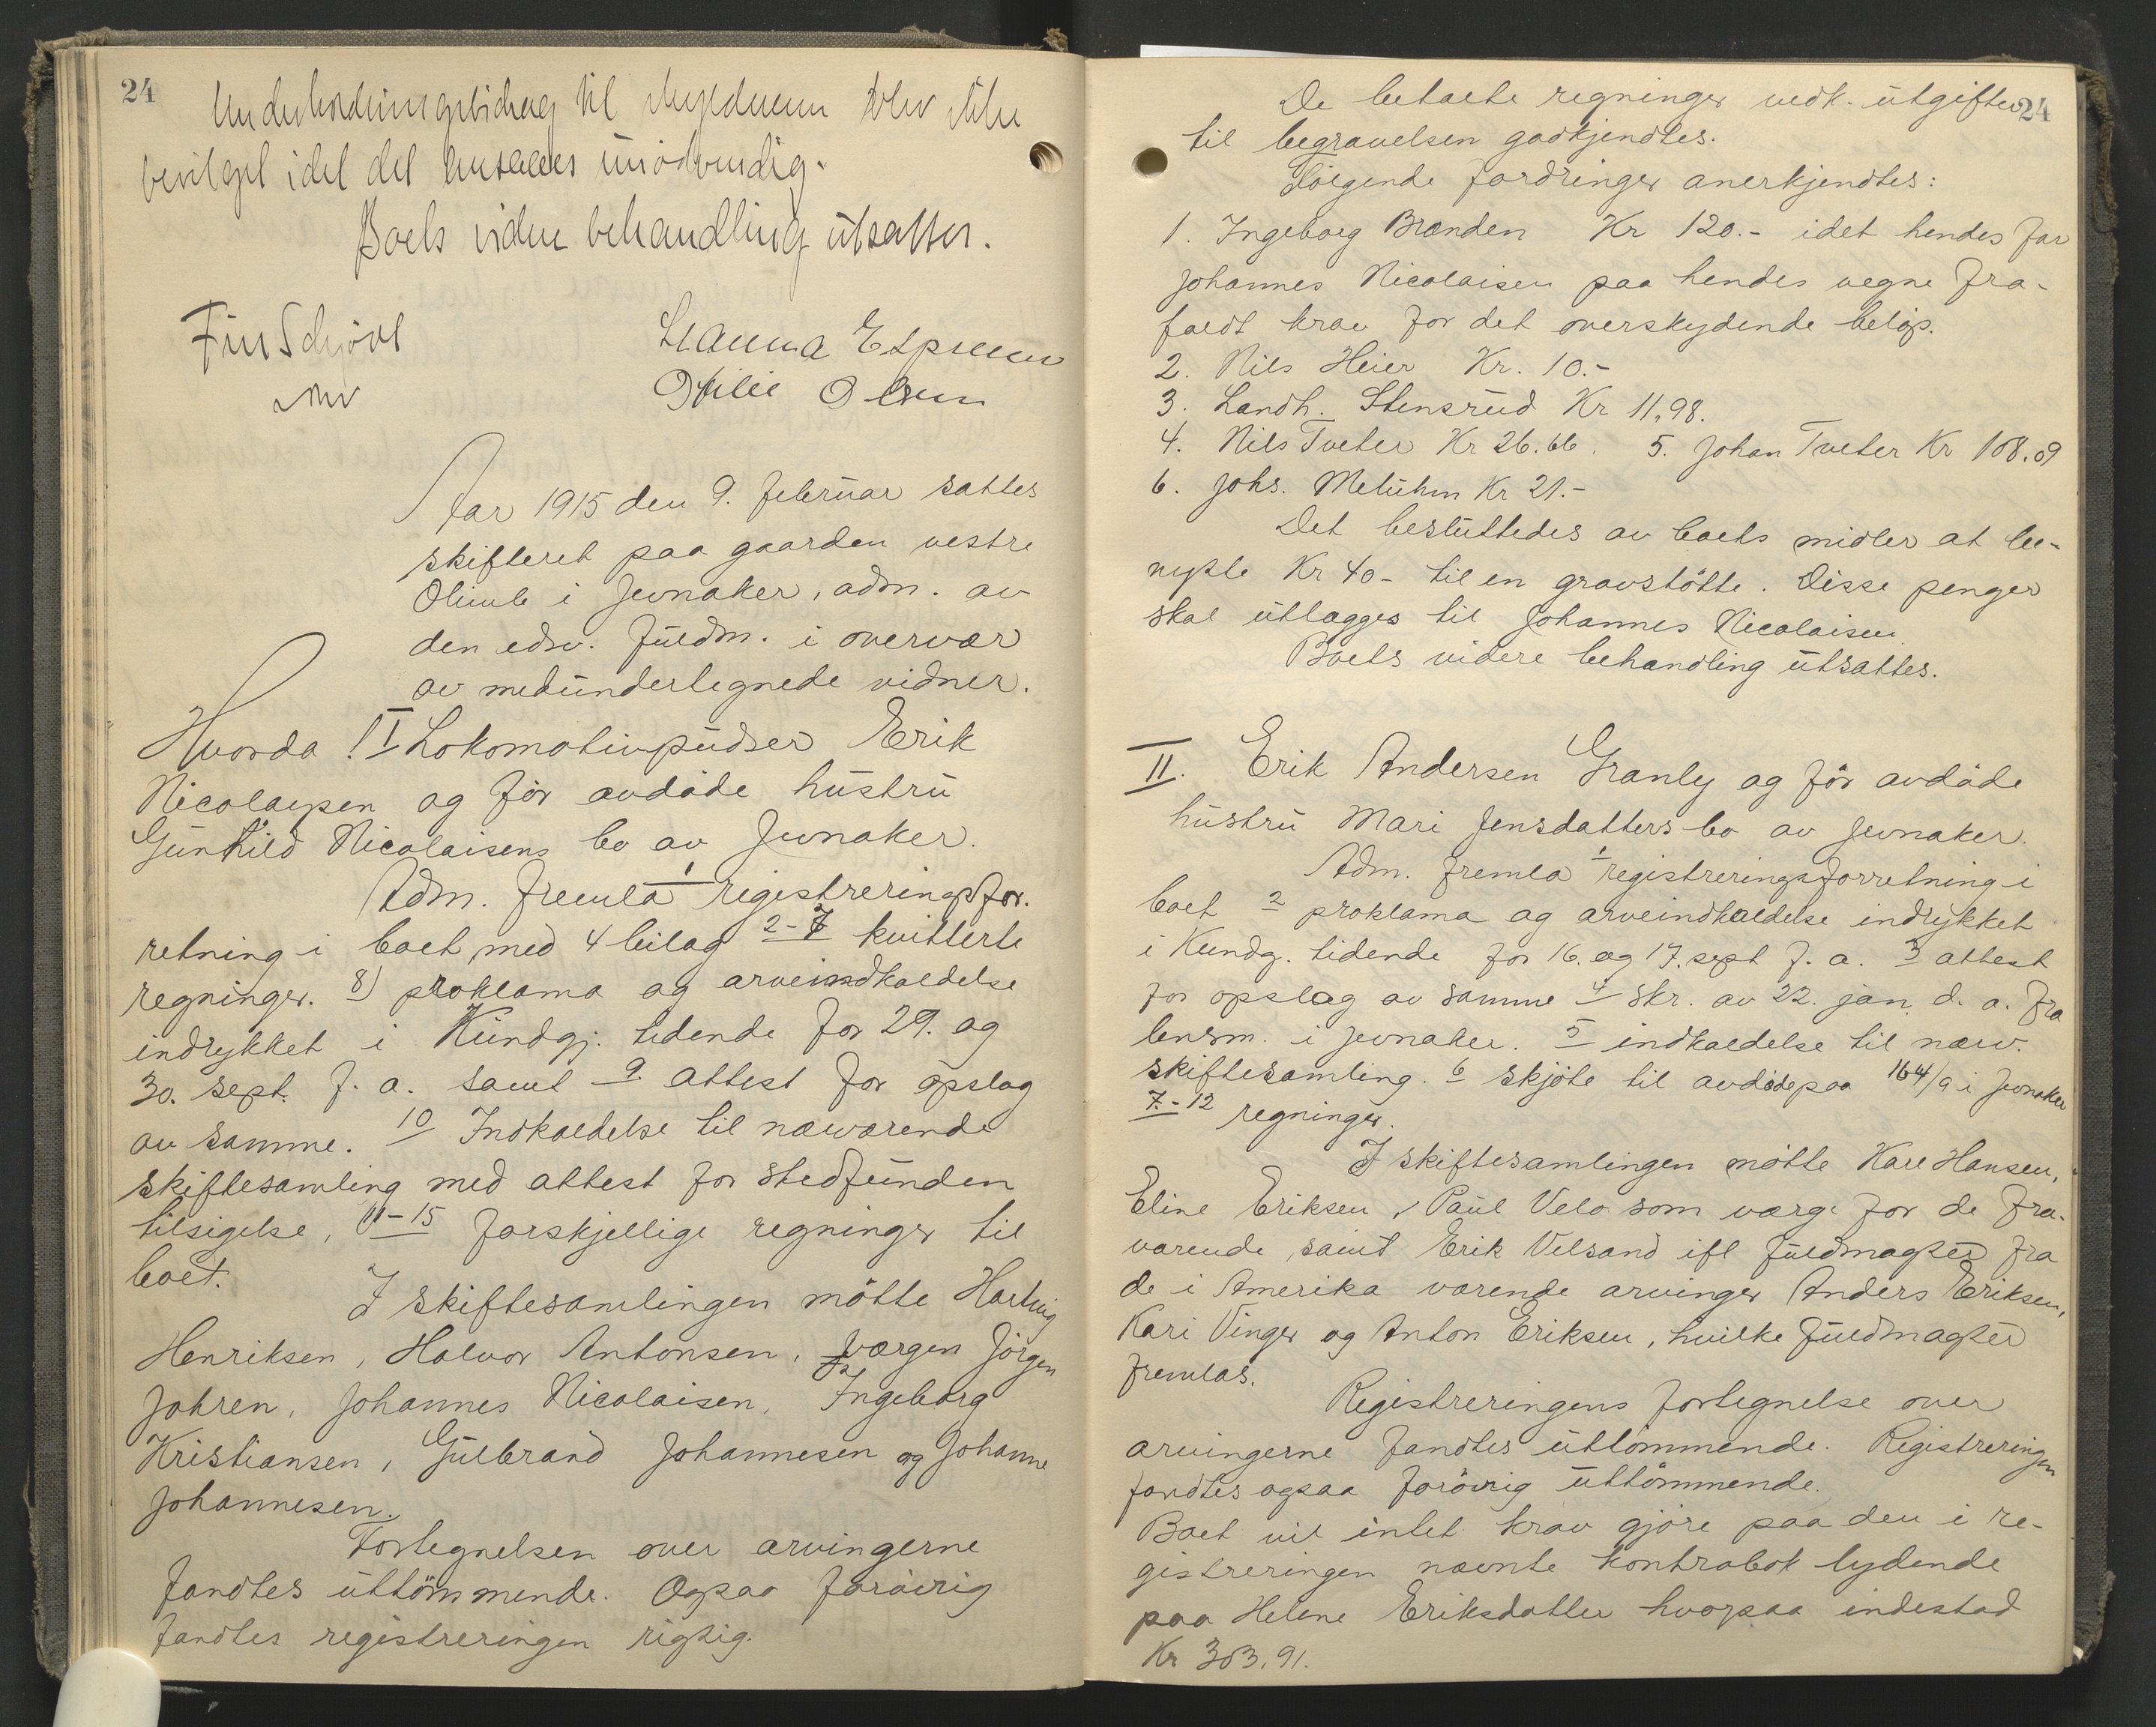 24
Underholdningsbidrag til blev ikke
bevilget idet det ansaaes unödvendig.
Boets videre behandling utsattes.
Finn Schiöll Hanna Espensen
Otilie Olsen
Aar 1915 den 9. februar sattes
skifteret paa gaarden vestre
Olimb i Jevnaker, adm. av
den edsv. fuldm. i overvær
av medundertegnede vidner.
Hvorda! I Lokomotivpudser Erik
Nicolaysen og för avdöde hustru
Gunhild Nicolaisens bo av Jevnaker.
Adm. fremla 1 registreringsfor.
retning i boet, med 4 bilag 2-7 kvitterte
regninger. 8) proklama og arveindkaldelse
indrykket i Kundgj. tidende for 29. og
30. sept. f. a. samt 9. attest for opslag
av samme. 10 Indkaldelse til nærværende
skiftesamling med attest for stedfunden
tilsigelse, 11-15 forskjellige regninger til
boet.
I skiftesamlingen mötte Hartvig
Henriksen, Halvor Antonsen, værgen Jörgen
Johren, Johannes Nicolaisen, Ingeborg
Kristiansen, Gulbrand Johannesen og Johanne
Johannesen.
Fortegnelsen over arvingerne
fandtes uttömmende. Ogsaa forövrig
fandtes registreringen rigtig.
24
De betalte regninger vedk. utgifter
til begravelsen godkjendtes.
Fölgende fordringer anerkjendtes:
1. Ingeborg Brænden Kr 120.- idet hendes far
Johannes Nicolaisen paa hendes vegne fra-
faldt krav for det overskydende belöp.
2. Nils Heier Kr. 10.-
3. Landh. Stensrud Kr 11,98.
4. Nils Tveter Kr 26.66. 5. Johan Tveter Kr 108.09
6. Johs. Kr 21.-
Det besluttedes av boets midler at be-
nytte Kr 40- til en gravstötte. Disse penger
skal utlægges til Johannes Nicolaisen.
Boets videre behandling utsattes.
II. Erik Andersen Granly og för avdöde
hustru Mari Jensdatters bo av Jevnaker.
Adm. fremla 1 registreringsforretning i
boet 2 proklama og arveindkaldelse indrykket
i Kundg. tidende for 16. og 17. sept f. a. 3 attest
for opslag av samme 4 skr. av 22. jan. d. a. fra
lensm. i Jevnaker. 5 indkaldelse til nærv.
skiftesamling. 6 skjöte til avdöde paa 164/9 i Jevnaker
7.-12 regninger.
I skiftesamlingen mötte Kari Hansen,
Eline Eriksen, Paul Velo som værge for de fra-
værende samt Erik Velsand ifl fuldmagter fra
de i Amerika værende arvinger Anders Eriksen,
Kari Vinger og Anton Eriksen, hvilke fuldmagter
fremlas.
Registreringens fortegnelse over
arvingerne fandtes uttömmende. Registreringen
fandtes ogsaa forövrig uttömmende.
Boet vil intet krav gjöre paa den i re-
gistreringen nævnte kontrabok lydende
paa Helene Eriksdatter hvorpaa indestod
Kr 303.91.